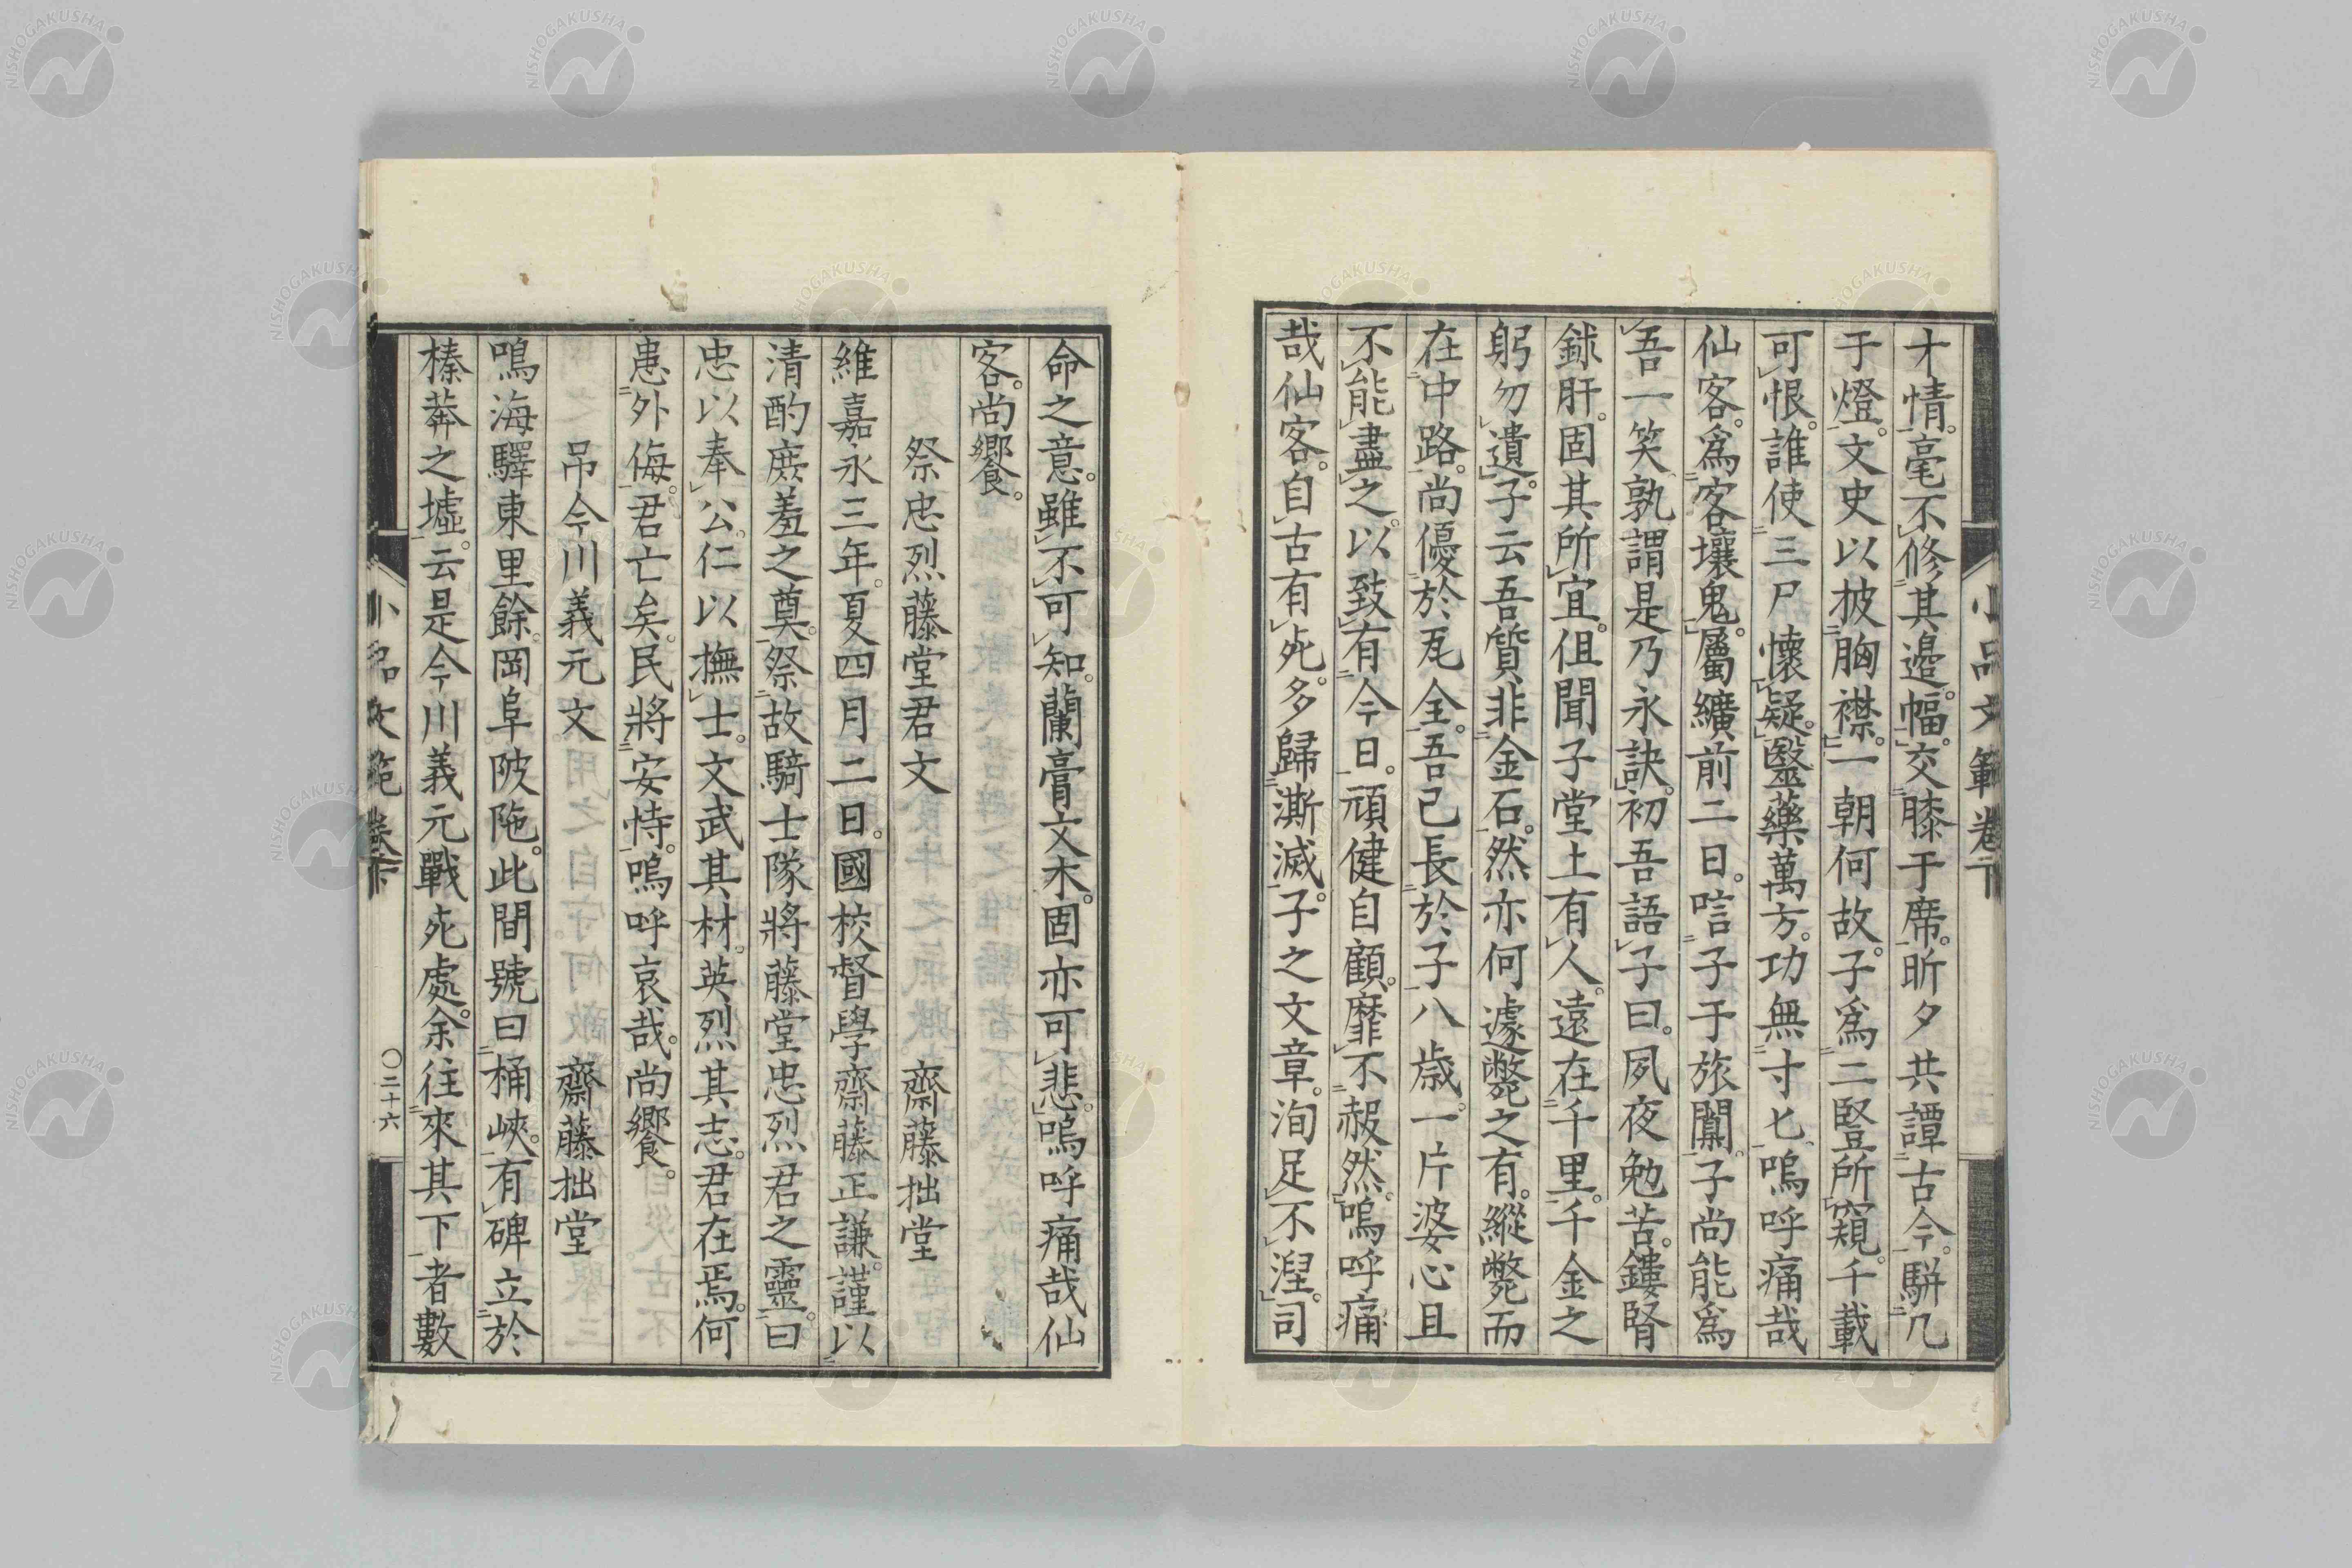 小品文範卷下
才情。毫不修其邊幅。交膝于席。昕夕共譚古今。駢几
于燈。文史以披胸襟。一朝何故。子爲二豎所窺。千載
可恨。誰使三尸懷疑。醫藥萬方。功無寸匕。嗚呼痛哉
仙客。爲客壤鬼。屬纊前二日。唁子于旅闈。子尚能爲
吾一笑孰謂是乃永訣。初吾語子曰。夙夜勉苦。鏤腎
鉥肝。固其所宜。但聞子堂上有人。遠在千里。千金之
躬勿遺。子云吾質非金石。然亦何遽斃之有。縱斃而
在中路。尚優於瓦全。吾已長於子八歲。一片婆心且
不能盡之。以致有今日。頑健自顧。靡不赧然。嗚呼痛
哉仙客。自古有死。多歸澌滅。子之文章。洵足不湼。司
命之意。雖不可知。蘭膏文木。固亦可悲。嗚呼痛哉仙
客。尚饗。
祭忠烈藤堂君文 齋藤拙堂
維嘉永三年。夏四月二日。國校督學齋藤正謙。謹以
清酌庶羞之奠。祭故騎士隊將藤堂忠烈君之靈。曰
忠以奉公。仁以撫士。文武其材。英烈其志。君在焉。何
患外侮。君亡矣。民將安恃。嗚呼哀哉。尚饗。
吊今川義元文 齋藤拙堂
鳴海驛東里餘。岡阜陂陁。此間號曰桶峽。有碑立於
榛莽之墟。云是今川義元戰死處。余往來其下者數
小品文範卷下 〇二十六
NISHOGAKUSHA
NISHOGAKUSHA
NISHOGAKUSHA
NISHOGAKUSHA
NISHOGAKUSHA